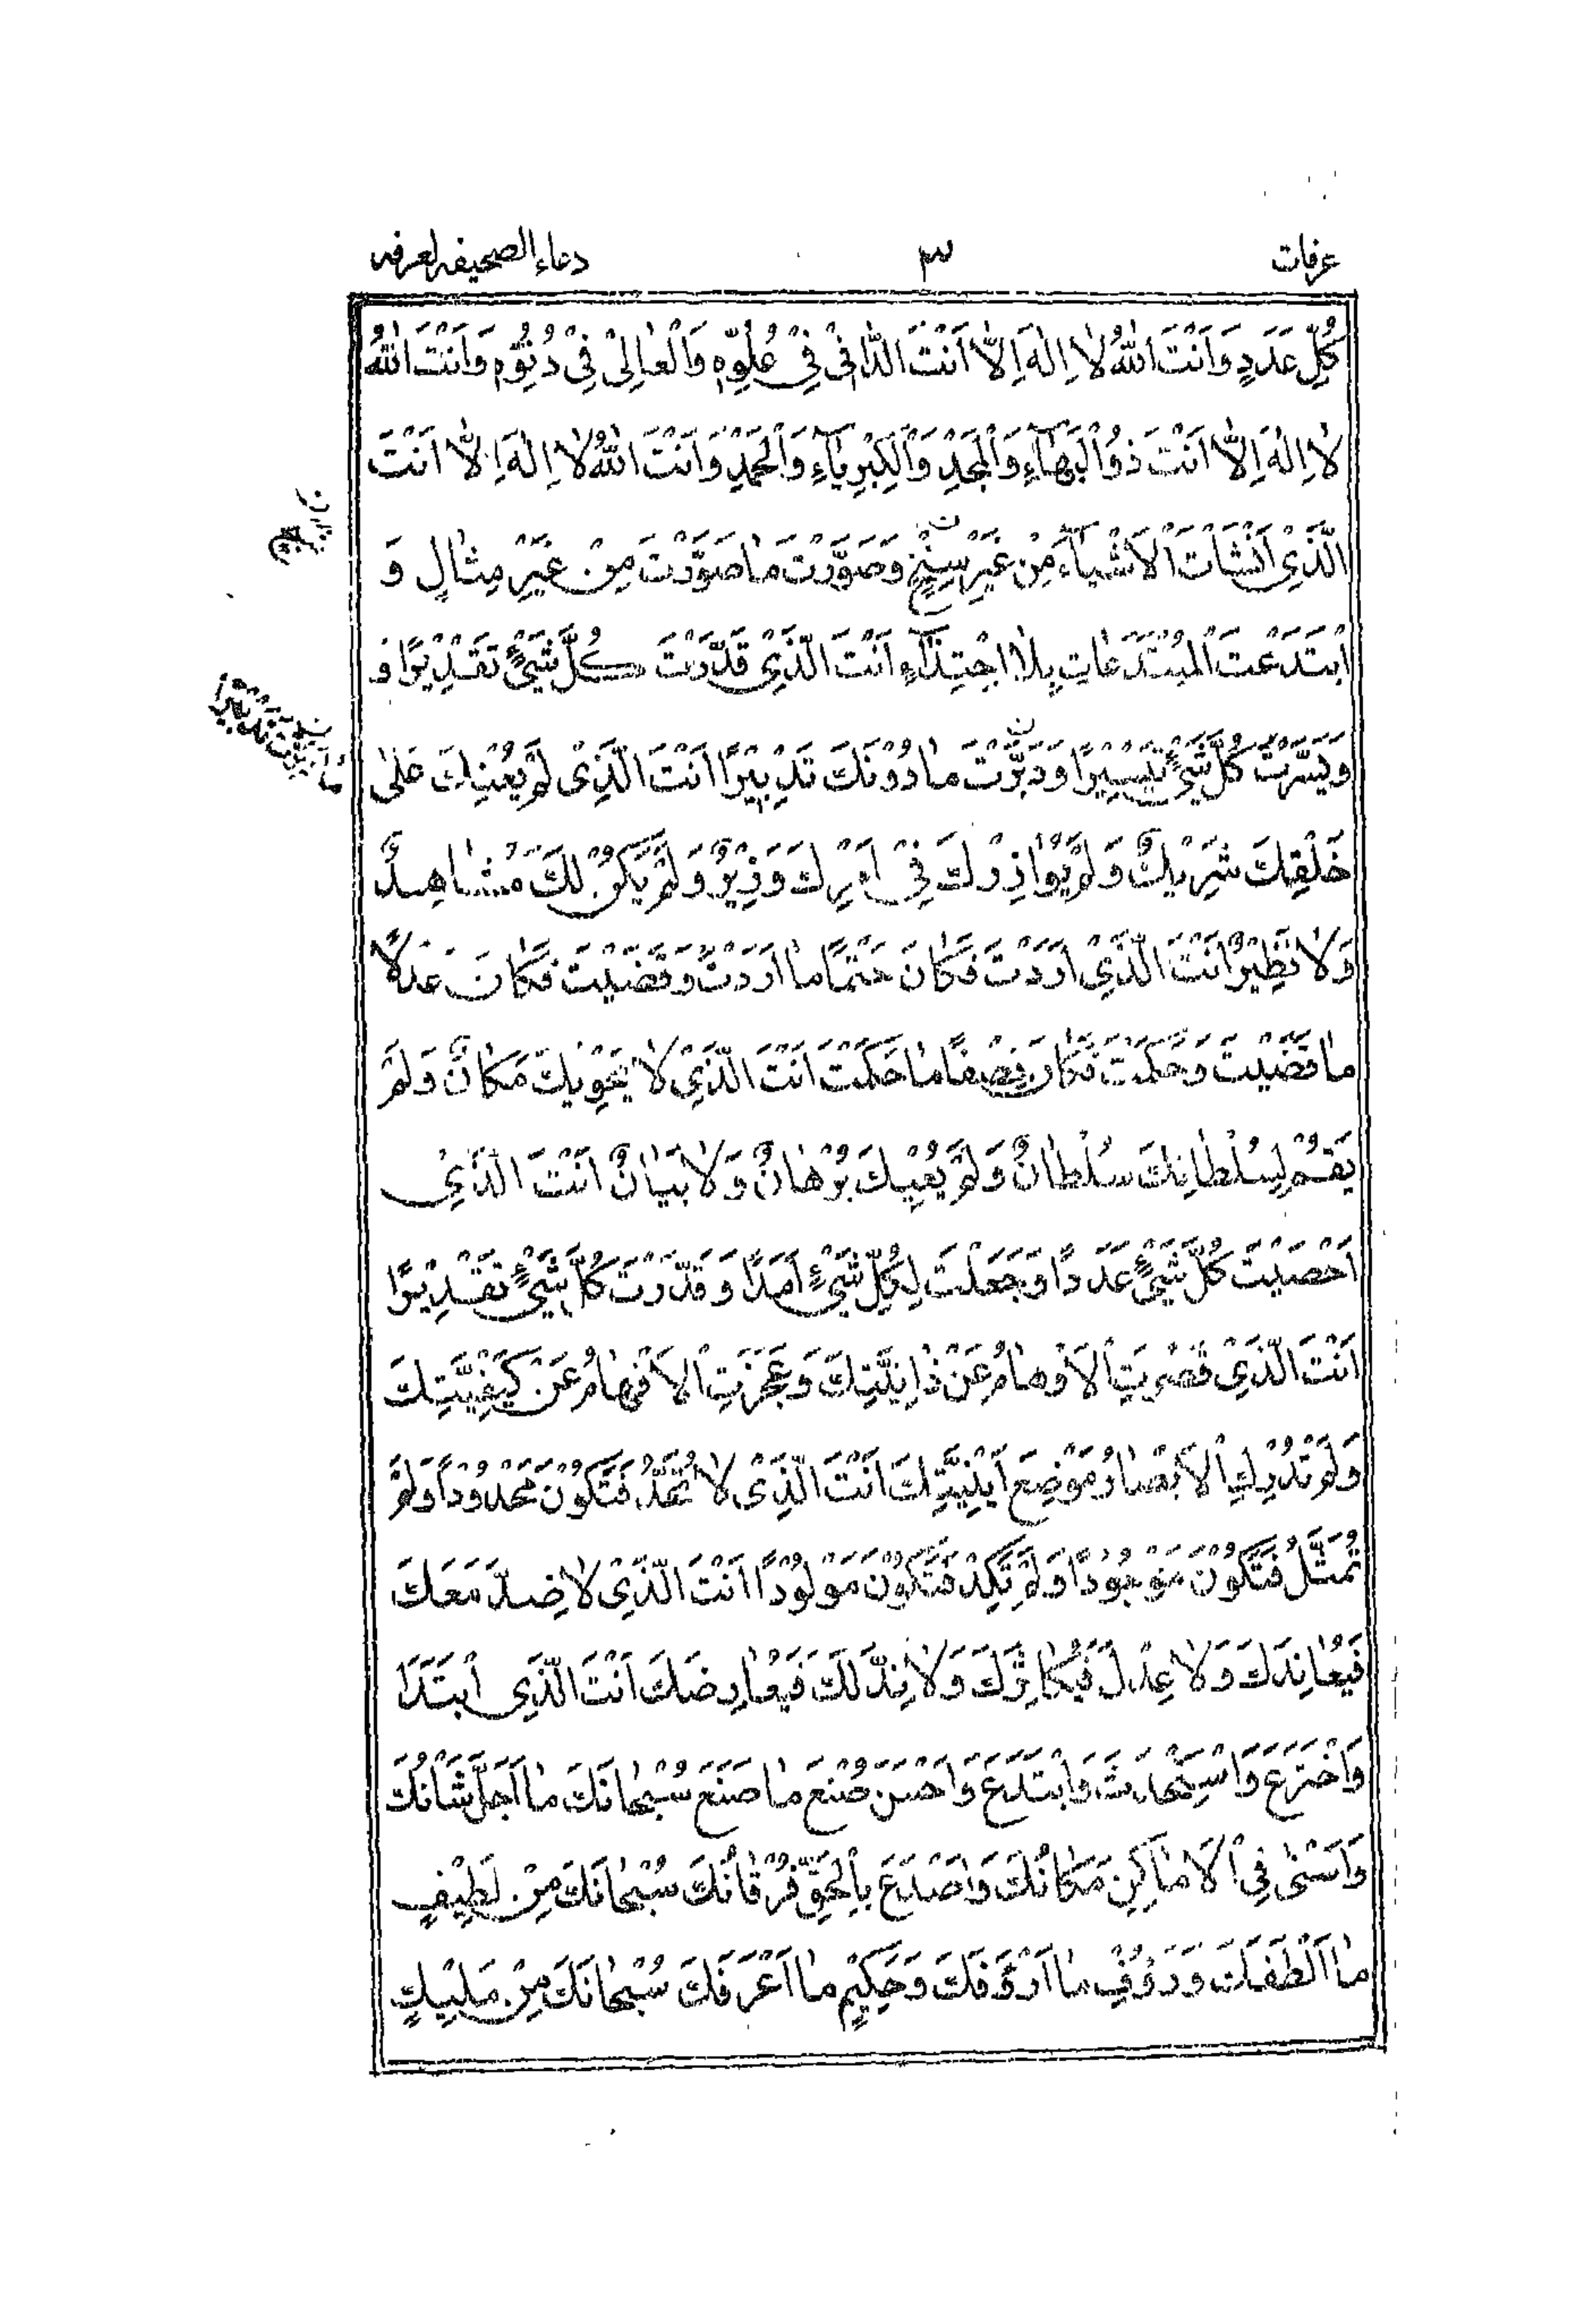 عرفات ٣ دعاء الصحيفه لعرفه
كُلِّ عَدَدٍ وَاَنْتَ اللهُ لا اِلهَ اِلّا اَنْتَ الدّانِیْ فِیْ عُلُوِّهٖ وَالْعالِیْ فِیْ دُنُوِّهٖ وَاَنْتَ اللهُ
لا اِلهَ اِلّا اَنْتَ ذُو الْبَهآءِ وَالْمَجْدِ وَالْكِبْرِيآءِ وَالْحَمْدِ وَاَنْتَ اللهُ لا اِلهَ اِلّا اَنْتَ
الَّذِیْ اَنْشَاْتَ الْاَشْيآءَ مِنْ غَيْرِ سِنْخٍ وَصَوَّرْتَ ما صَوَّرْتَ مِنْ غَيْرِ مِثالٍ وَ
ابْتَدَعْتَ الْمُبْتَدَعاتِ بِلا احْتِذآءٍ اَنْتَ الَّذِیْ قَدَّرْتَ كُلَّ شَیْءٍ تَقْدِيْرًا وَ
وَيَسَّرْتَ كُلَّ شَیْءٍ تَيْسِيْرًا وَدَبَّرْتَ ما دُوْنَكَ تَدْبِيْرًا اَنْتَ الَّذِیْ لَمْ يُعِنْكَ عَلٰی
خَلْقِكَ شَرِيْكٌ وَلَمْ يُوازِرْكَ فِیْ اَمْرِكَ وَزِيْرٌ وَلَمْ يَكُنْ لَكَ مُشاهِدٌ
وَلا نَظِيْرٌ اَنْتَ الَّذِیْ اَرَدْتَ فَكانَ حَتْمًا ما اَرَدْتَ وَقَضَيْتَ فَكانَ عَدْلًا
ما قَضَيْتَ وَحَكَمْتَ فَكانَ نِصْفًا ما حَكَمْتَ اَنْتَ الَّذِیْ لا يَحْوِيْكَ مَكانٌ وَلَمْ
يَقُمْ لِسُلْطانِكَ سُلْطانٌ وَلَمْ يُعْيِكَ بُرْهانٌ وَلا بَيانٌ اَنْتَ الَّذِیْ
اَحْصَيْتَ كُلَّ شَیْءٍ عَدَدًا وَجَعَلْتَ لِكُلِّ شَیْءٍ اَمَدًا وَقَدَّرْتَ كُلَّ شَیْءٍ تَقْدِيْرًا
اَنْتَ الَّذِیْ قَصُرَتِ الْاَوْهامُ عَنْ ذاتِيَّتِكَ وَعَجَزَتِ الْاَفْهامُ عَنْ كَيْفِيَّتِكَ
وَلَمْ تُدْرِكِ الْاَبْصارُ مَوْضِعَ اَيْنِيَّتِكَ اَنْتَ الَّذِیْ لا تُحَدُّ فَتَكُوْنَ مَحْدُوْدًا وَلَمْ
تُمَثَّلْ فَتَكُوْنَ مَوْجُوْدًا وَلَمْ تَلِدْ فَتَكُوْنَ مَوْلُوْدًا اَنْتَ الَّذِیْ لا ضِدَّ مَعَكَ
فَيُعانِدَكَ وَلا عِدْلَ فَيُكاثِرَكَ وَلا نِدَّ لَكَ فَيُعارِضَكَ اَنْتَ الَّذِی ابْتَدَاَ
وَاخْتَرَعَ وَاسْتَحْدَثَ وَابْتَدَعَ وَاَحْسَنَ صُنْعَ ما صَنَعَ سُبْحانَكَ ما اَجَلَّ شَاْنَكَ
وَاَسْنٰی فِی الْاَماكِنِ مَكانَكَ وَاَصْدَعَ بِالْحَقِّ فُرْقانَكَ سُبْحانَكَ مِنْ لَطِيْفٍ
ما اَلْطَفَكَ وَرَؤُفٍ ما اَرْؤَفَكَ وَحَكِيْمٍ ما اَعْرَفَكَ سُبْحانَكَ مِنْ مَلِيْكٍ